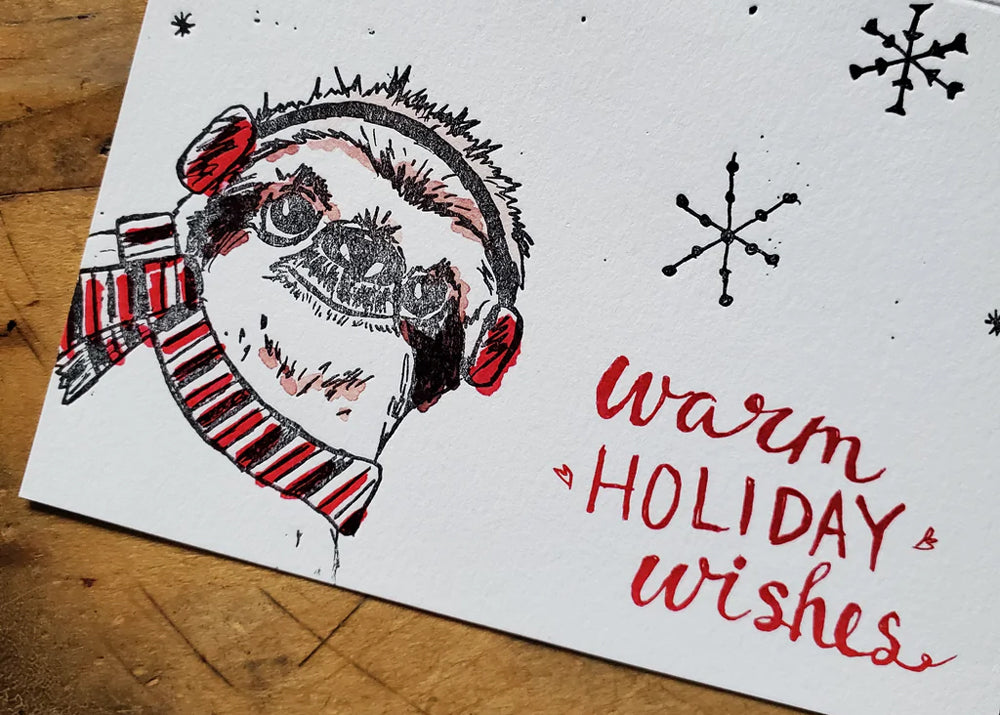 warm
HOLIDAY
wishes